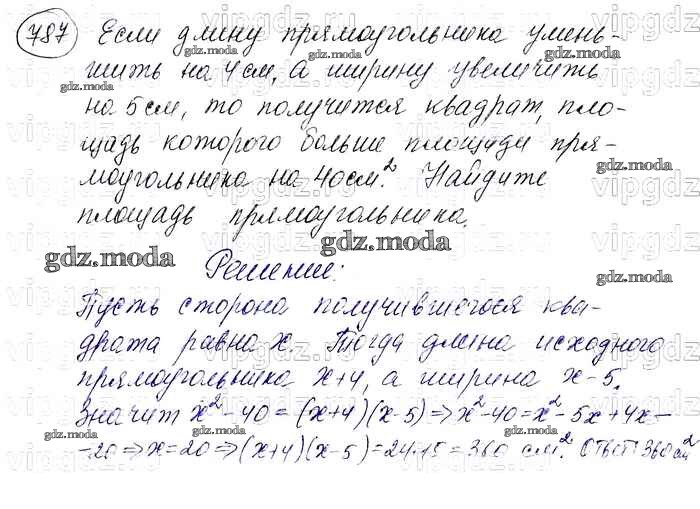 787 Если длину прямоугольника умень-
шить на 4 см, а ширину увеличить
на 5 см, то получится квадрат, пло-
щадь которого больше площади пря-
моугольника на 40 см². Найдите
площадь прямоугольника.
Решение:
Пусть сторона получившегося ква-
драта равна x. Тогда длина исходного
прямоугольника x+4, а ширина x-5.
Значит x²-40=(x+4)(x-5)⇒x²-40=x²-5x+4x-
-20⇒x=20⇒(x+4)(x-5)=24·15=360 см². Ответ: 360 см²